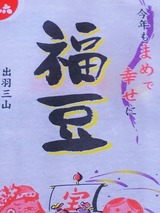 今年もまめで
幸せに
福豆
出羽三山
宝